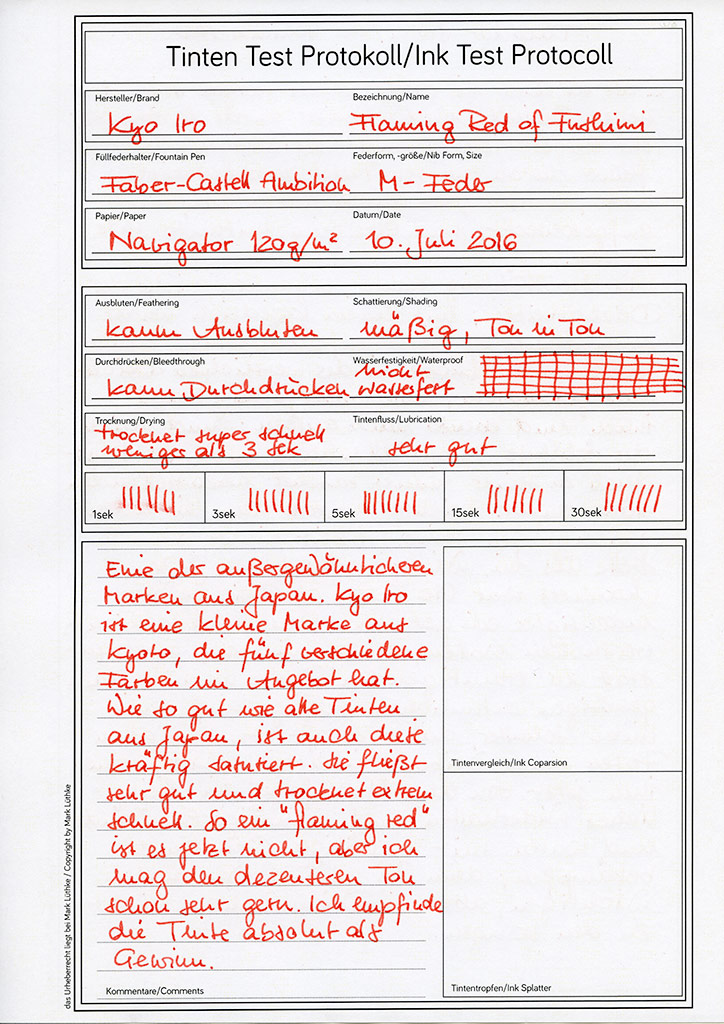 Tinten Test Protokoll/Ink Test Protocoll
Hersteller/Brand
Bezeichnung/Name
Kyo Iro
Flaming Red of Fushimi
Füllfederhalter/Fountain Pen
Federform, -größe/Nib Form, Size
Faber-Castell Ambition
M-Feder
Papier/Paper
Datum/Date
Navigator 120g/m²
10. Juli 2016
Ausbluten/Feathering
Schattierung/Shading
kaum Ausbluten
mäßig, Ton in Ton
Durchdrücken/Bleedthrough
Wasserfestigkeit/Waterproof
kaum Durchdrücken
nicht
wasserfest
Trocknung/Drying
Tintenfluss/Lubrication
trocknet super schnell
weniger als 3 sek
sehr gut
1sek
3sek
5sek
15sek
30sek
Eine der außergewöhnlicheren
Marken aus Japan. Kyo Iro
ist eine kleine Marke aus
Kyoto, die fünf verschiedene
Farben im Angebot hat.
Wie so gut wie alle Tinten
aus Japan, ist auch diese
kräftig saturiert. Sie fließt
sehr gut und trocknet extrem
schnell. So ein "flaming red"
ist es jetzt nicht, aber ich
mag den dezenteren Ton
schon sehr gern. Ich empfinde
die Tinte absolut als
Gewinn.
Kommentare/Comments
Tintenvergleich/Ink Coparsion
Tintentropfen/Ink Splatter
das Urheberrecht liegt bei Mark Lüthke / Copyright by Mark Lüthke